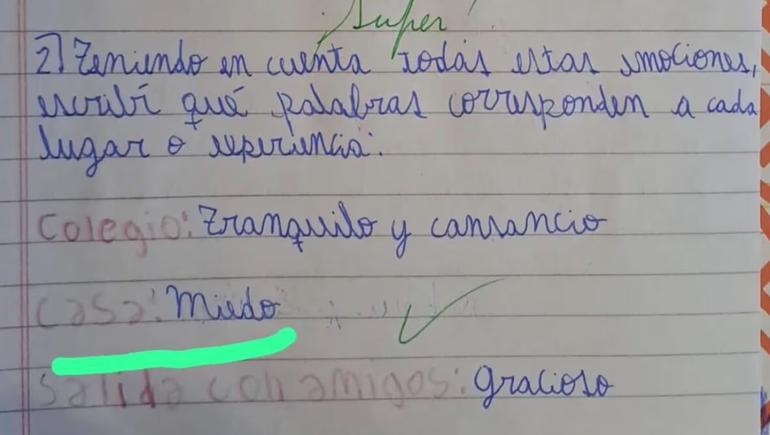 Super
2) Teniendo en cuenta todas estas emociones,
escribí qué palabras corresponden a cada
lugar o experiencia:
Colegio: Tranquilo y cansancio
Casa: Miedo
Salida con amigos: gracioso